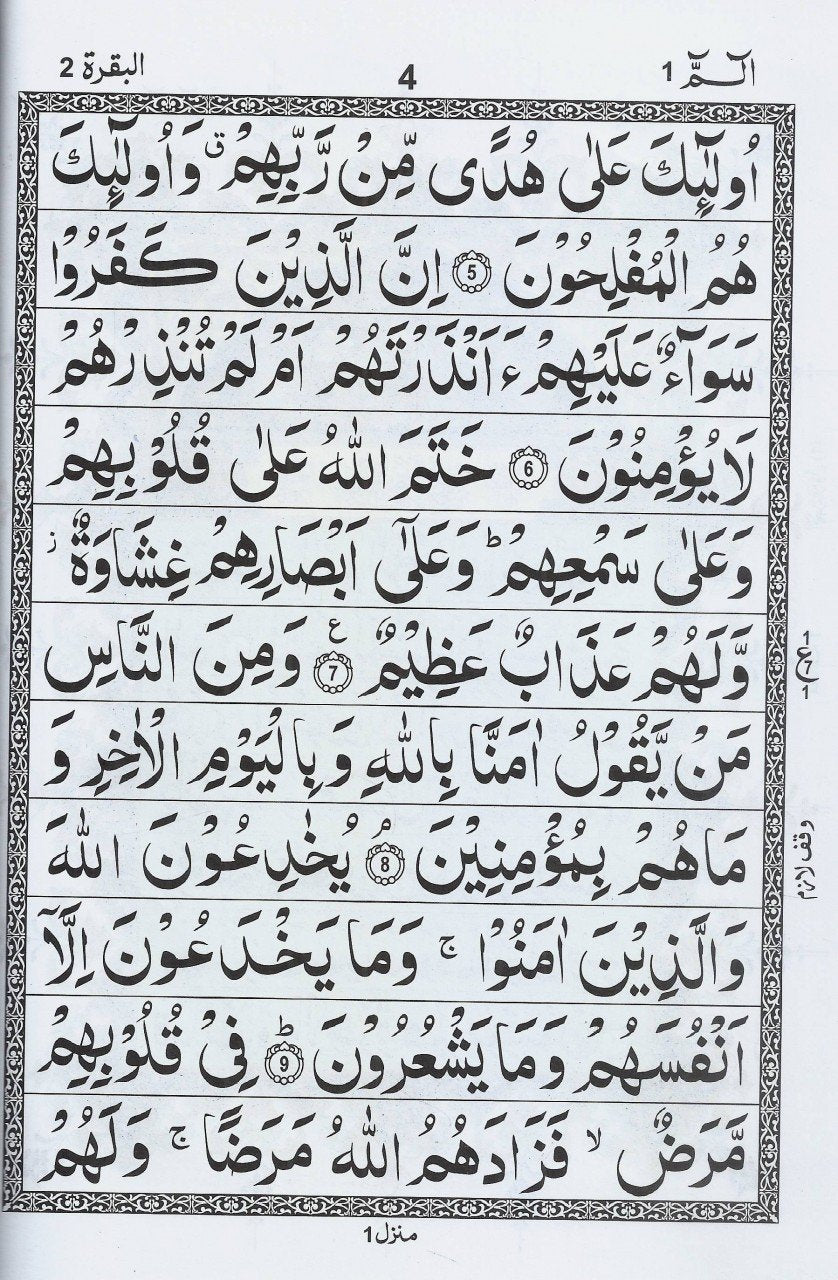 الٓمّٓ 1
4
البقرة 2
اُولٰٓئِكَ عَلٰى هُدًى مِّنْ رَّبِّهِمْ ق وَاُولٰٓئِكَ
هُمُ الْمُفْلِحُوْنَ 5 اِنَّ الَّذِيْنَ كَفَرُوْا
سَوَآءٌ عَلَيْهِمْ ءَاَنْذَرْتَهُمْ اَمْ لَمْ تُنْذِرْهُمْ
لَا يُؤْمِنُوْنَ 6 خَتَمَ اللّٰهُ عَلٰى قُلُوْبِهِمْ
وَعَلٰى سَمْعِهِمْ ط وَعَلٰٓى اَبْصَارِهِمْ غِشَاوَةٌ ز
وَّلَهُمْ عَذَابٌ عَظِيْمٌ 7 ع وَمِنَ النَّاسِ
مَنْ يَّقُوْلُ اٰمَنَّا بِاللّٰهِ وَبِالْيَوْمِ الْاٰخِرِ وَ
مَا هُمْ بِمُؤْمِنِيْنَ 8 م يُخٰدِعُوْنَ اللّٰهَ
وَالَّذِيْنَ اٰمَنُوْا ج وَمَا يَخْدَعُوْنَ اِلَّآ
اَنْفُسَهُمْ وَمَا يَشْعُرُوْنَ 9 ط فِيْ قُلُوْبِهِمْ
مَّرَضٌ لا فَزَادَهُمُ اللّٰهُ مَرَضًا ج وَلَهُمْ
وقف لازم
منزل 1